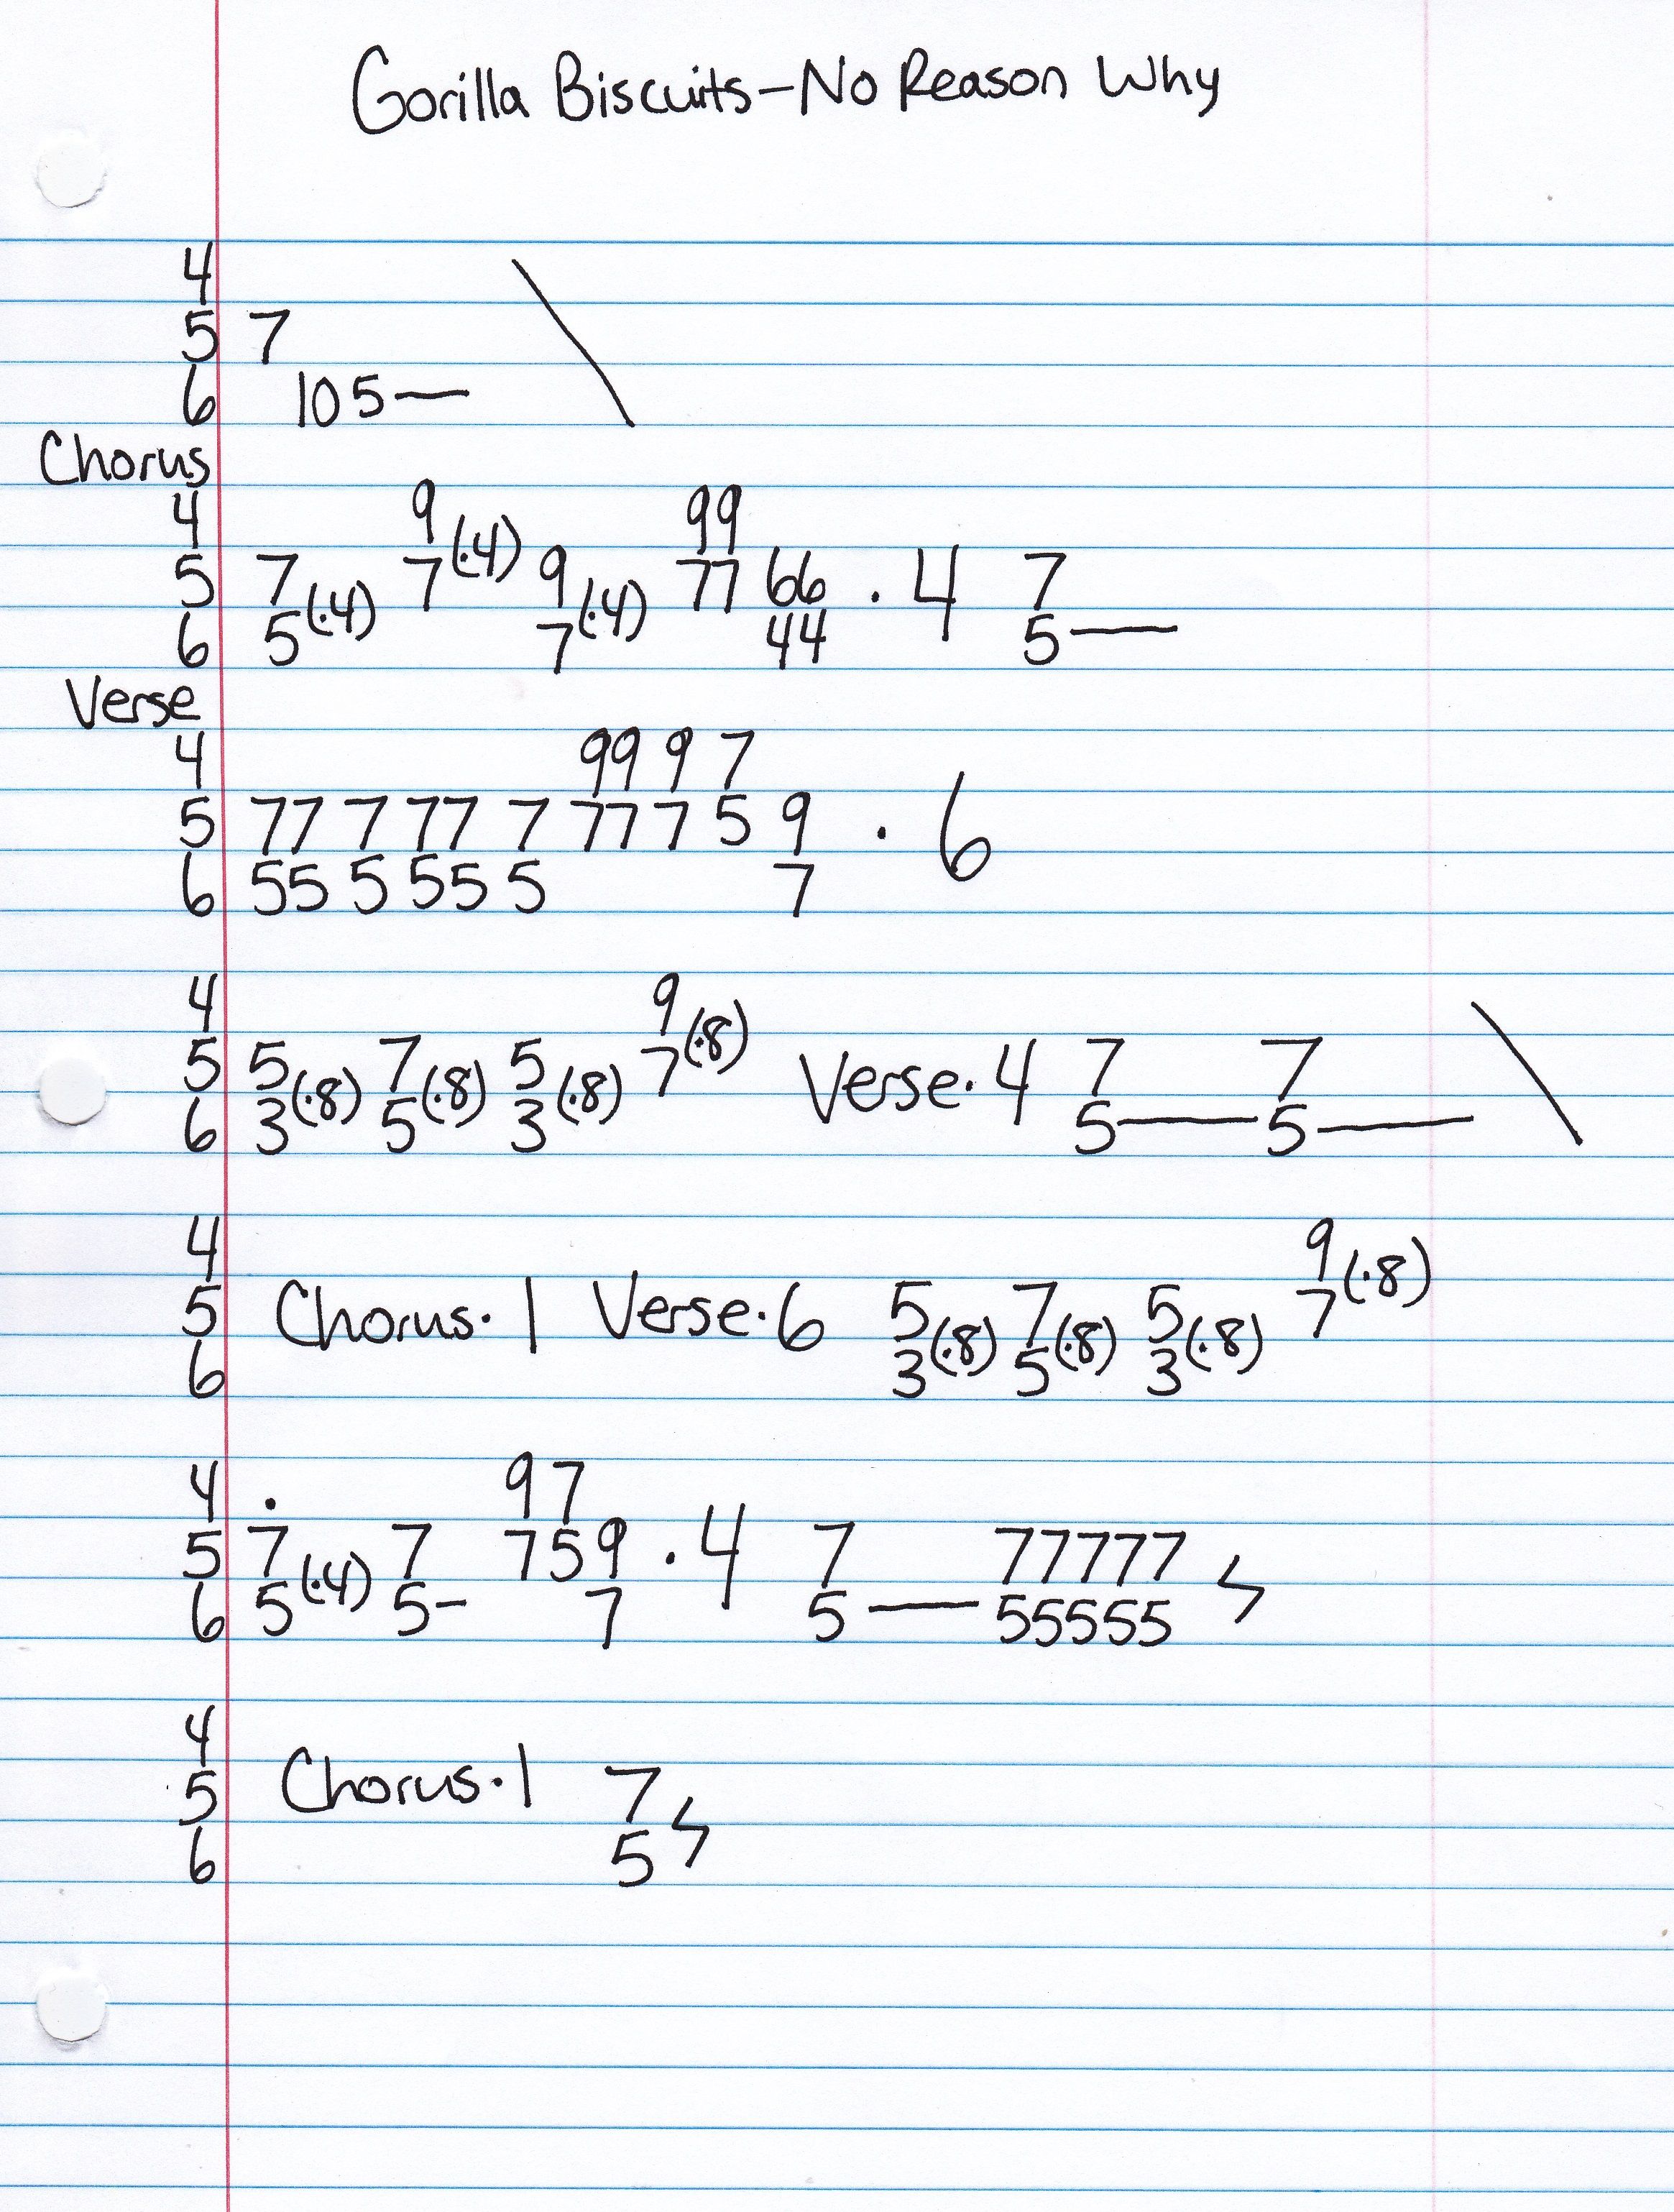 Gorilla Biscuits-No Reason Why
4
5 7
6 10 5—\
Chorus
4 9(·4) 99
5 7 7 9 77 66 · 4 7
6 5(·4) 7(·4) 44 5—
Verse
4 99 9 7
5 77 7 77 7 77 7 5 9 · 6
6 55 5 55 5 7
4 9
5 5 7 5 7(·8) Verse·4 7 7
6 3(·8) 5(·8) 3(·8) 5— 5—\
4 9
5 Chorus·1 Verse·6 5 7 5 7(·8)
6 3(·8) 5(·8) 3(·8)
4 · 9 7
5 7 7 7 5 9 · 4 7 77777
6 5(·4) 5- 7 5—55555
4
5 Chorus·1 7
6 5